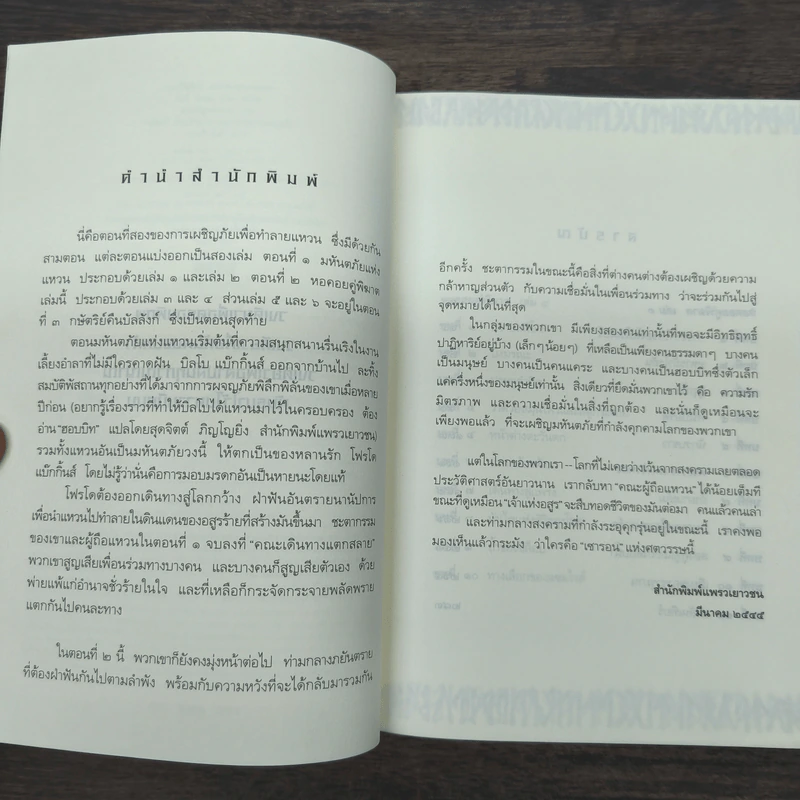 คำนำสำนักพิมพ์
นี่คือตอนที่สองของการเผชิญภัยเพื่อทำลายแหวน ซึ่งมีด้วยกัน
สามตอน แต่ละตอนแบ่งออกเป็นสองเล่ม ตอนที่ ๑ มหันตภัยแห่ง
แหวน ประกอบด้วยเล่ม ๑ และเล่ม ๒ ตอนที่ ๒ หอคอยคู่พิฆาต
เล่มนี้ ประกอบด้วยเล่ม ๓ และ ๔ ส่วนเล่ม ๕ และ ๖ จะอยู่ในตอน
ที่ ๓ กษัตริย์คืนบัลลังก์ ซึ่งเป็นตอนสุดท้าย
ตอนมหันตภัยแห่งแหวนเริ่มต้นที่ความสนุกสนานรื่นเริงในงาน
เลี้ยงอำลาที่ไม่มีใครคาดฝัน บิลโบ แบ๊กกิ้นส์ ออกจากบ้านไป ละทิ้ง
สมบัติพัสถานทุกอย่างที่ได้มาจากการผจญภัยพิลึกพิลั่นของเขาเมื่อหลาย
ปีก่อน (อยากรู้เรื่องราวที่ทำให้บิลโบได้แหวนมาไว้ในครอบครอง ต้อง
อ่าน "ฮอบบิท" แปลโดยสุดจิตต์ ภิญโญยิ่ง สำนักพิมพ์แพรวเยาวชน)
รวมทั้งแหวนอันเป็นมหันตภัยวงนี้ ให้ตกเป็นของหลานรัก โฟรโด
แบ๊กกิ้นส์ โดยไม่รู้ว่านั่นคือการมอบมรดกอันเป็นหายนะโดยแท้
โฟรโดต้องออกเดินทางสู่โลกกว้าง ฝ่าฟันอันตรายนานัปการ
เพื่อนำแหวนไปทำลายในดินแดนของอสูรร้ายที่สร้างมันขึ้นมา ชะตากรรม
ของเขาและผู้ถือแหวนในตอนที่ ๑ จบลงที่ "คณะเดินทางแตกสลาย"
พวกเขาสูญเสียเพื่อนร่วมทางบางคน และบางคนก็สูญเสียตัวเอง ด้วย
พ่ายแพ้แก่อำนาจชั่วร้ายในใจ และที่เหลือก็กระจัดกระจายพลัดพราย
แตกกันไปคนละทาง
ในตอนที่ ๒ นี้ พวกเขาก็ยังคงมุ่งหน้าต่อไป ท่ามกลางภยันตราย
ที่ต้องฝ่าฟันกันไปตามลำพัง พร้อมกับความหวังที่จะได้กลับมารวมกัน
อีกครั้ง ชะตากรรมในขณะนี้คือสิ่งที่ต่างคนต่างต้องเผชิญด้วยความ
กล้าหาญส่วนตัว กับความเชื่อมั่นในเพื่อนร่วมทาง ว่าจะร่วมกันไปสู่
จุดหมายได้ในที่สุด
ในกลุ่มของพวกเขา มีเพียงสองคนเท่านั้นที่พอจะมีอิทธิฤทธิ์
ปาฏิหาริย์อยู่บ้าง (เล็กๆ น้อยๆ) ที่เหลือเป็นเพียงคนธรรมดาๆ บางคน
เป็นมนุษย์ บางคนเป็นคนแคระ และบางคนเป็นฮอบบิทซึ่งตัวเล็ก
แค่ครึ่งหนึ่งของมนุษย์เท่านั้น สิ่งเดียวที่ยึดมั่นพวกเขาไว้ คือ ความรัก
มิตรภาพ และความเชื่อมั่นในสิ่งที่ถูกต้อง และนั่นก็ดูเหมือนจะ
เพียงพอแล้ว ที่จะเผชิญมหันตภัยที่กำลังคุกคามโลกของพวกเขา
แต่ในโลกของพวกเรา--โลกที่ไม่เคยว่างเว้นจากสงครามเลยตลอด
ประวัติศาสตร์อันยาวนาน เรากลับหา "คณะผู้ถือแหวน" ได้น้อยเต็มที
ขณะที่ดูเหมือน "เจ้าแห่งอสูร" จะสืบทอดชีวิตของมันต่อมา คนแล้วคนเล่า
และท่ามกลางสงครามที่กำลังระอุคุกรุ่นอยู่ในขณะนี้ เราคงพอ
มองเห็นแล้วกระมัง ว่าใครคือ "เซารอน" แห่งศตวรรษนี้
สำนักพิมพ์แพรวเยาวชน
มีนาคม ๒๕๔๕